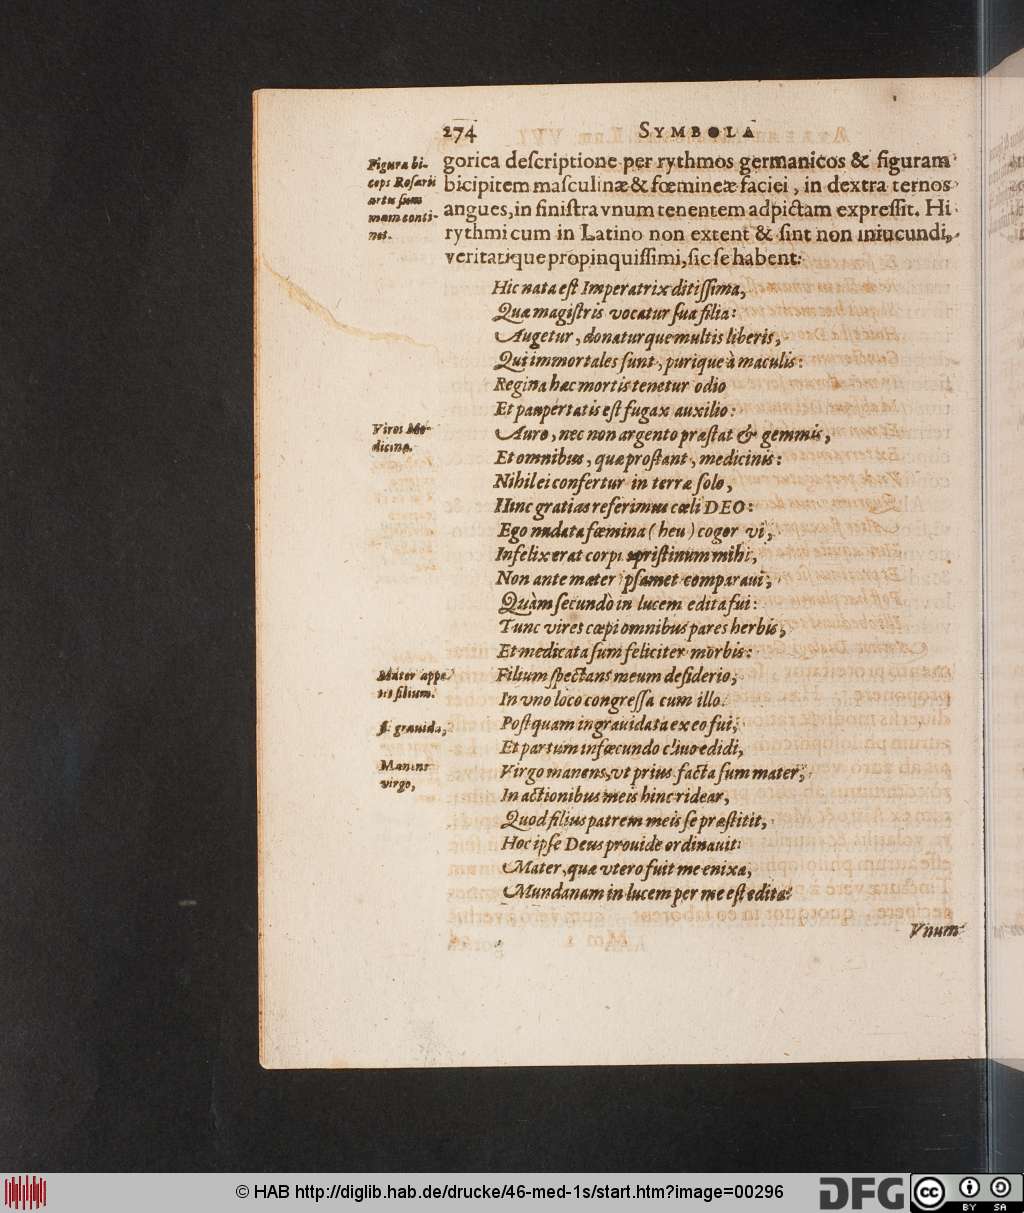 274 SYMBOLA
Figura bi-
ceps Rosarii
artis sum
mam conti-
net.
gorica deſcriptione per rythmos germanicos & figuram
bicipitem maſculinæ & fœmineæ faciei, in dextra ternos
angues, in ſiniſtra vnum tenentem adpictam expreſſit. Hi
rythmi cum in Latino non extent & ſint non iniucundi,
veritatique propinquiſſimi, ſic ſe habent:
Hic nata eſt Imperatrix ditiſſima,
Quæ magiſtris vocatur ſua filia:
Augetur, donaturque multis liberis,
Qui immortales ſunt, purique à maculis:
Regina hæc mortis tenetur odio
Et paupertatis eſt fugax auxilio:
Vires Me-
dicinæ.
Auro, nec non argento præſtat & gemmis,
Et omnibus, quæ proſtant, medicinis:
Nihil ei confertur in terræ ſolo,
Hinc gratias referimus cœli DEO:
Ego nudata fœmina (heu) cogor vi,
Infelix erat corpus priſtinum mihi,
Non ante mater ipſamet comparaui,
Quàm ſecundò in lucem edita fui:
Tunc vires cœpi omnibus pares herbis,
Et medicata ſum feliciter morbis:
Mater appe-
tit filium.
Filium ſpectans meum deſiderio,
In vno loco congreſſa cum illo.
fit grauida,
Poſtquam ingrauidata ex eo fui,
Et partum infœcundo cliuo edidi,
Manens
virgo,
Virgo manens, vt prius facta ſum mater,
In actionibus meis hinc ridear,
Quod filius patrem meis ſe præſtitit,
Hoc ipſe Deus prouide ordinauit:
Mater, quæ vtero fuit me enixa,
Mundanam in lucem per me eſt edita:
Vnum
© HAB http://diglib.hab.de/drucke/46-med-1s/start.htm?image=00296
DFG
CC BY SA